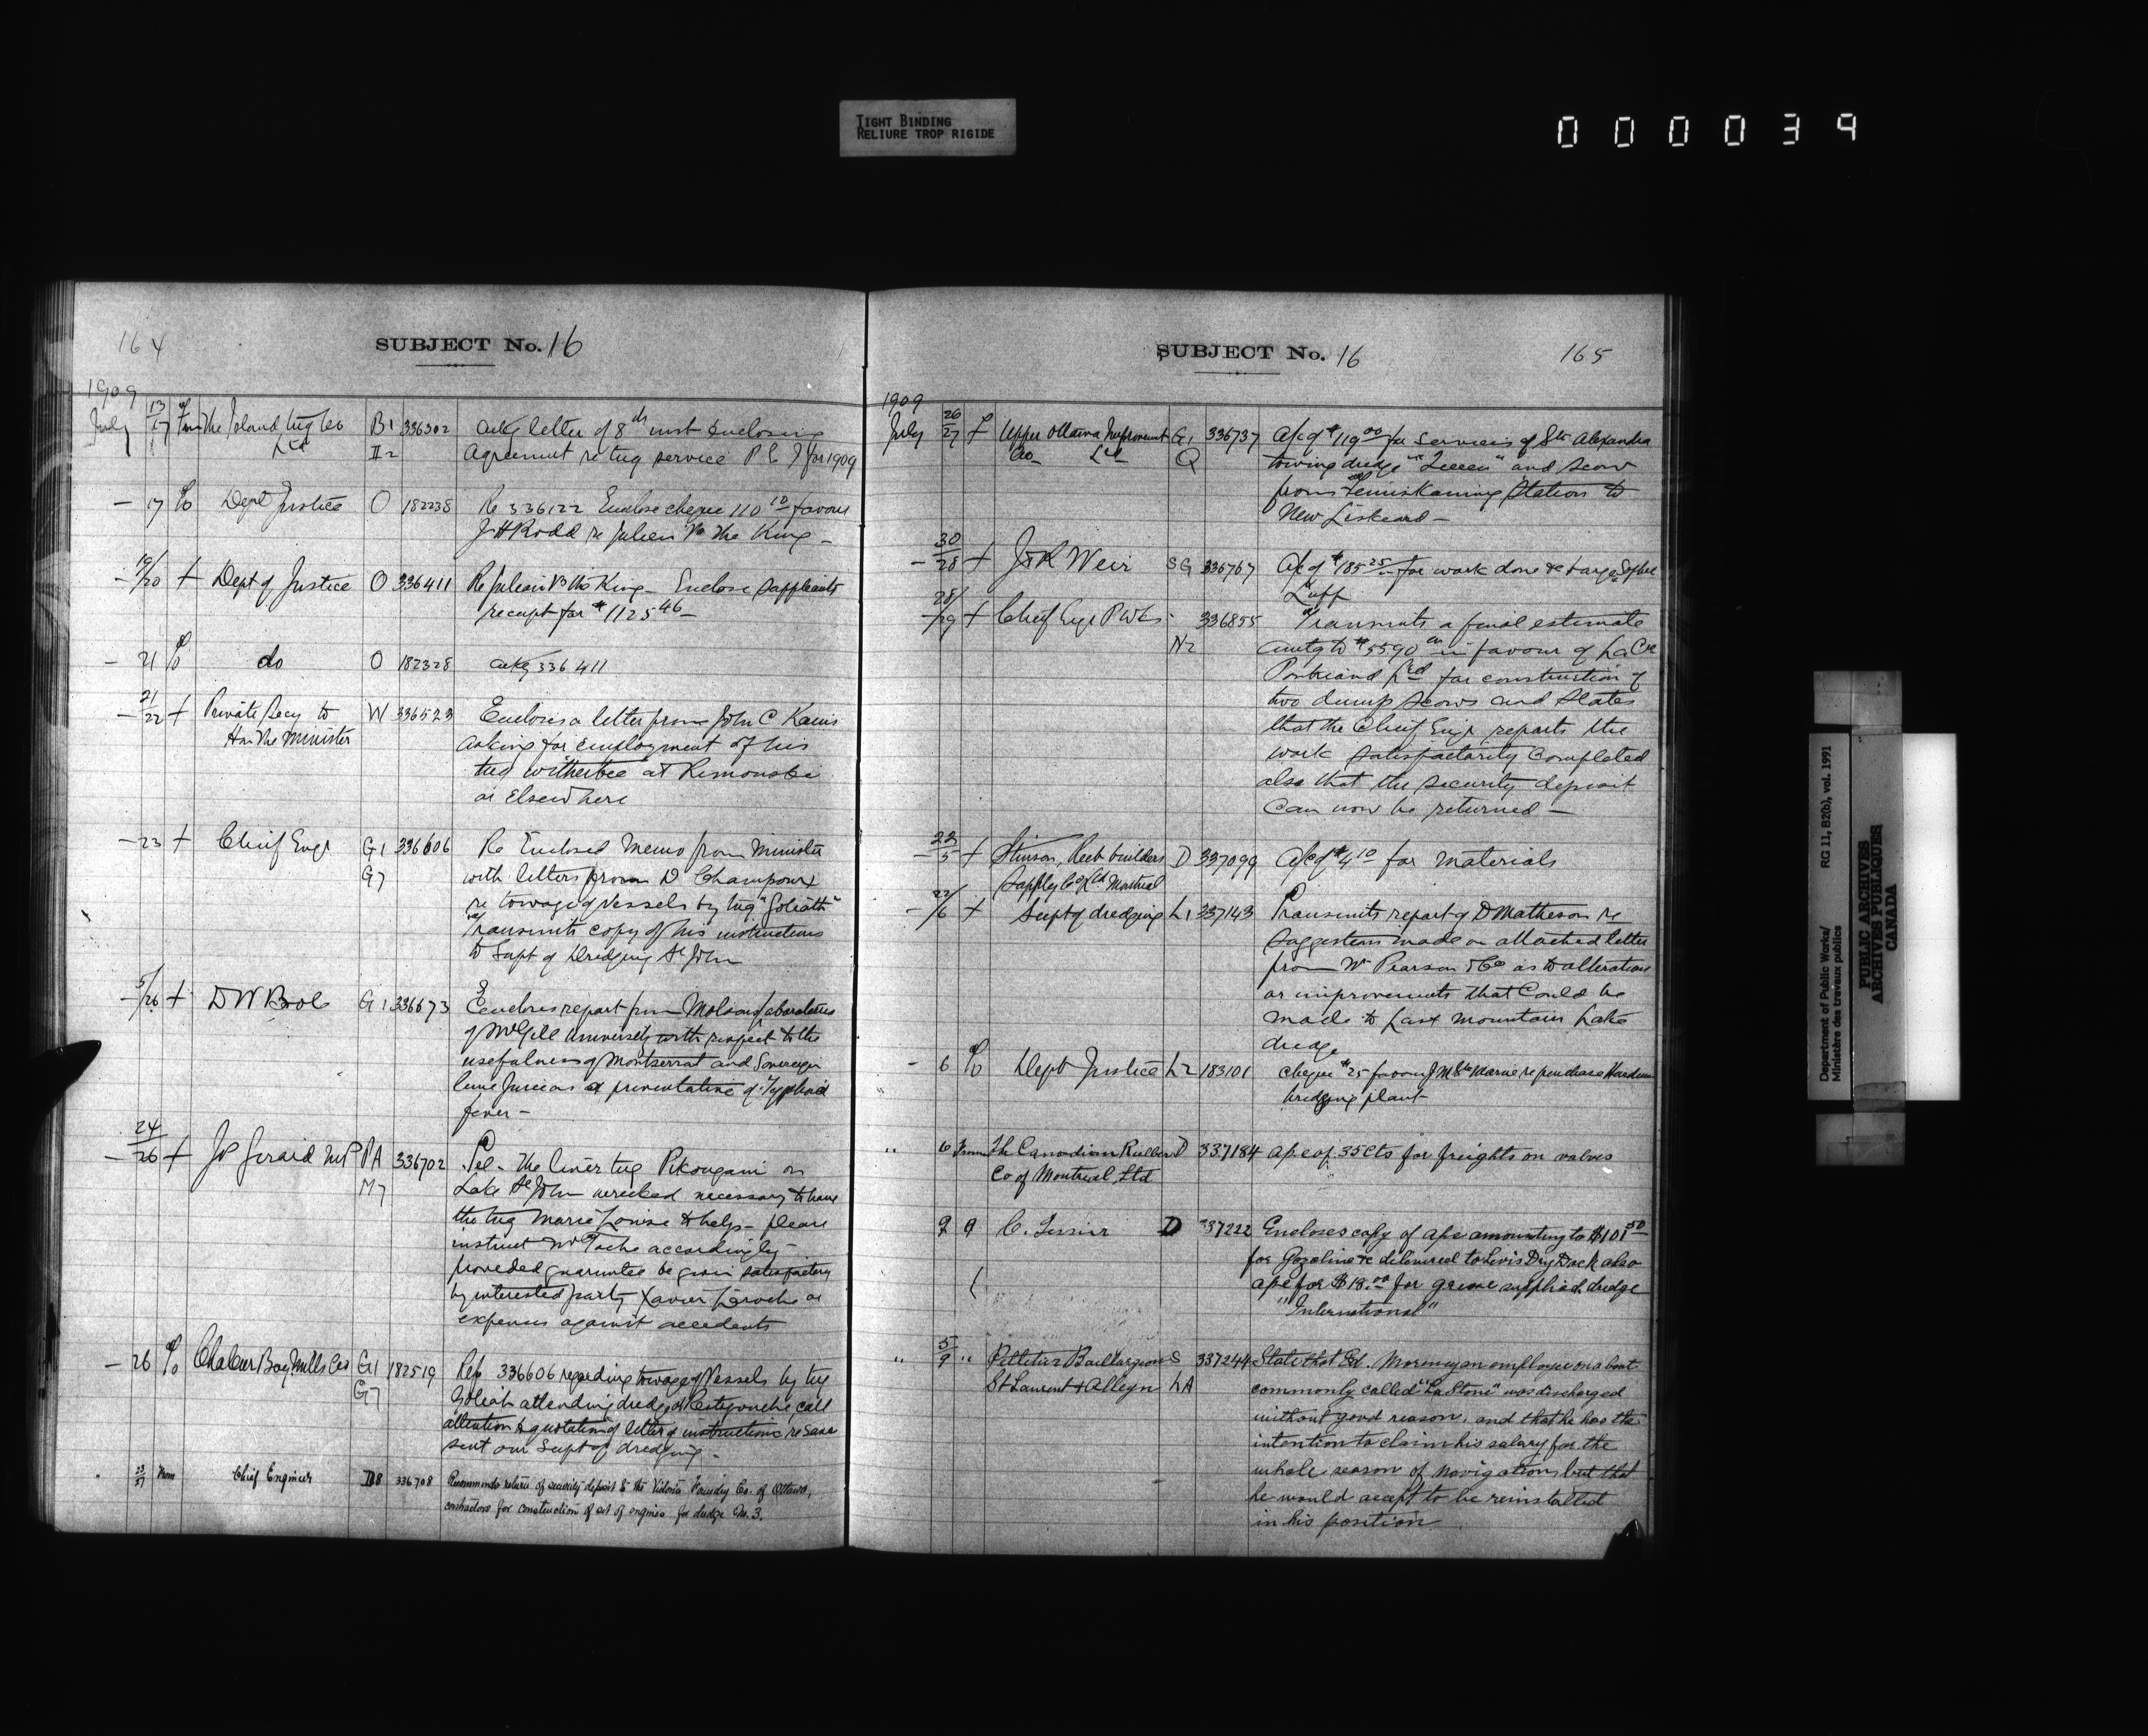 TIGHT BINDING
RELIURE TROP RIGIDE
000039
164
SUBJECT No. 16
1909
July 13/17 From The Island Tug Co B1 336302 ackg letter of 8th inst enclosing
Ltd II2 Agreement re tug service P E I for 1909
— 17 To Dept Justice O 182238 Re 336122 Enclose cheque 110 10 favour
J H Rodd re Julien Vs The King —
— 19/20 + Dept of Justice O 336411 Re Julien Vs the King — Enclose suppliants
receipt for $1125 46 —
— 21 To do O 182328 ackg 336411
— 21/22 + Private Secy to W 336523 Encloses a letter from John C Kaine
Hon The Minister asking for employment of his
tug Witherbee at Rimouski
or Elsewhere
— 23 + Chief Engr G1 336606 Re Enclosed Memo from Minister
G7 with letters from D Champoux
re towage of Vessels by tug "Goliath"
Transmits copy of his instructions
to Supt of Dredging St John
— /26 + D W Bole G1 336673 Encloses report from Molson Laboratories
of McGill University with respect to the
usefulness of Montserrat and Sovereign
lime Juice as a preventative of Typhoid
fever —
— 24/26 + J Girard MP PA 336702 Tel — The liner tug Pikougami on
M7 Lake St John wrecked necessary to have
the tug Marie Louise to help — please
instruct Mr Tache accordingly
provided guarantee be given satisfactory
by interested party Xavier Laroche or
expenses against accidents
— 26 To Chaleur Bay Mills Co G1 182519 Rep 336606 regarding towage of Vessels by tug
G7 Goliath attending dredge at Restigouche, call
attention to quotation of letter of instructions re same
sent our Supt of dredging —
23/27 From Chief Engineer D8 336708 Recommends return of security deposit to the Victoria Foundry Co. of Ottawa,
contractors for construction of set of engines for dredge No. 3.
SUBJECT No. 16
165
1909
July 26/27 + Upper Ottawa Improvement G1 336737 A/c of $119 00 for services of Str Alexandra
Co — Ltd Q towing dredge and scow
from Temiskaming Station to
New Liskeard —
— 30/28 + J R Weir SG 336767 A/c of $185 25 for work done to barge Sophie
Luff
— 28/29 + Chief Engr P Wks 336855 Transmits a final estimate
N2 amtg to $5590 00 in favour of La Cie
Pontbriand Ltd for construction of
two dump scows and states
that the Chief Engr reports the
work satisfactorily completed
also that the security deposit
can now be returned —
— 22/5 + Stinson, Reeb builders D 337099 A/c of $4 10 for materials
Supply Co Ltd Montreal
— 22/6 + Supt of dredging L1 337143 Transmits report of D Matheson re
suggestions made on attached letter
from Wm Pearson & Co as to alterations
or improvements that could be
made to Last Mountain Lake
dredge
— 6 To Dept Justice L2 183101 Cheque $25 favour J M re purchase
dredging plant
" 6 From The Canadian Rubber D 337184 a/c of 35 cts for freights on valves
Co of Montreal, Ltd
9 9 C. Tessier D 337222 Encloses copy of a/c amounting to $101 50
for Gazoline &c delivered to Levis Dry Dock also
a/c for $18.00 for grease supplied dredge
"International"
" 5/9 " Pelletier Baillargeon S 337244 State that Ed. Morency an employee on a boat
St Laurent & Alleyn LA commonly called "La Stone" was discharged
without good reason, and that he has the
intention to claim his salary for the
whole season of navigation, but that
he would accept to be reinstalled
in his position
Department of Public Works/ RG 11, B2(b), vol. 1991
Ministère des travaux publics
PUBLIC ARCHIVES
ARCHIVES PUBLIQUES
CANADA